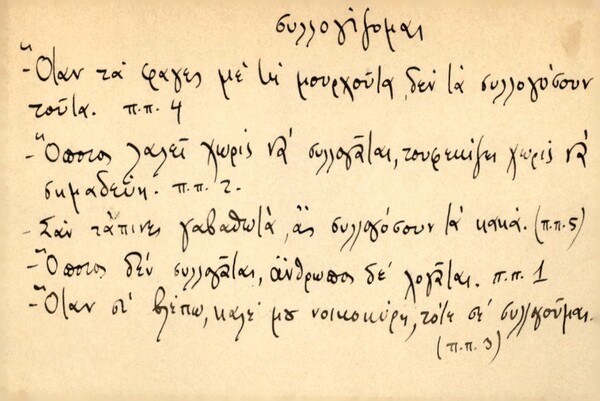 συλλογίζομαι
- Ὅταν τά 'φαγες μέ τή μουρχούτα, δέν τά συλλογόσουν
τοῦτα. π.π. 4
- Ὅποιος λαλεῖ χωρίς νά συλλογᾶται, τουφεκίζει χωρίς νά
σημαδεύη. π.π. 2.
- Σάν τἄπινες γαβαθωτά, ἄς συλλογόσουν τά κακά. (π.π. 5)
- Ὅποιος δέν συλλογᾶται, ἄνθρωπος δέ λογᾶται. π.π. 1
- Ὅταν σέ βλέπω, καλέ μου νοικοκύρη, τότε σέ συλλογοῦμαι.
(π.π. 3)